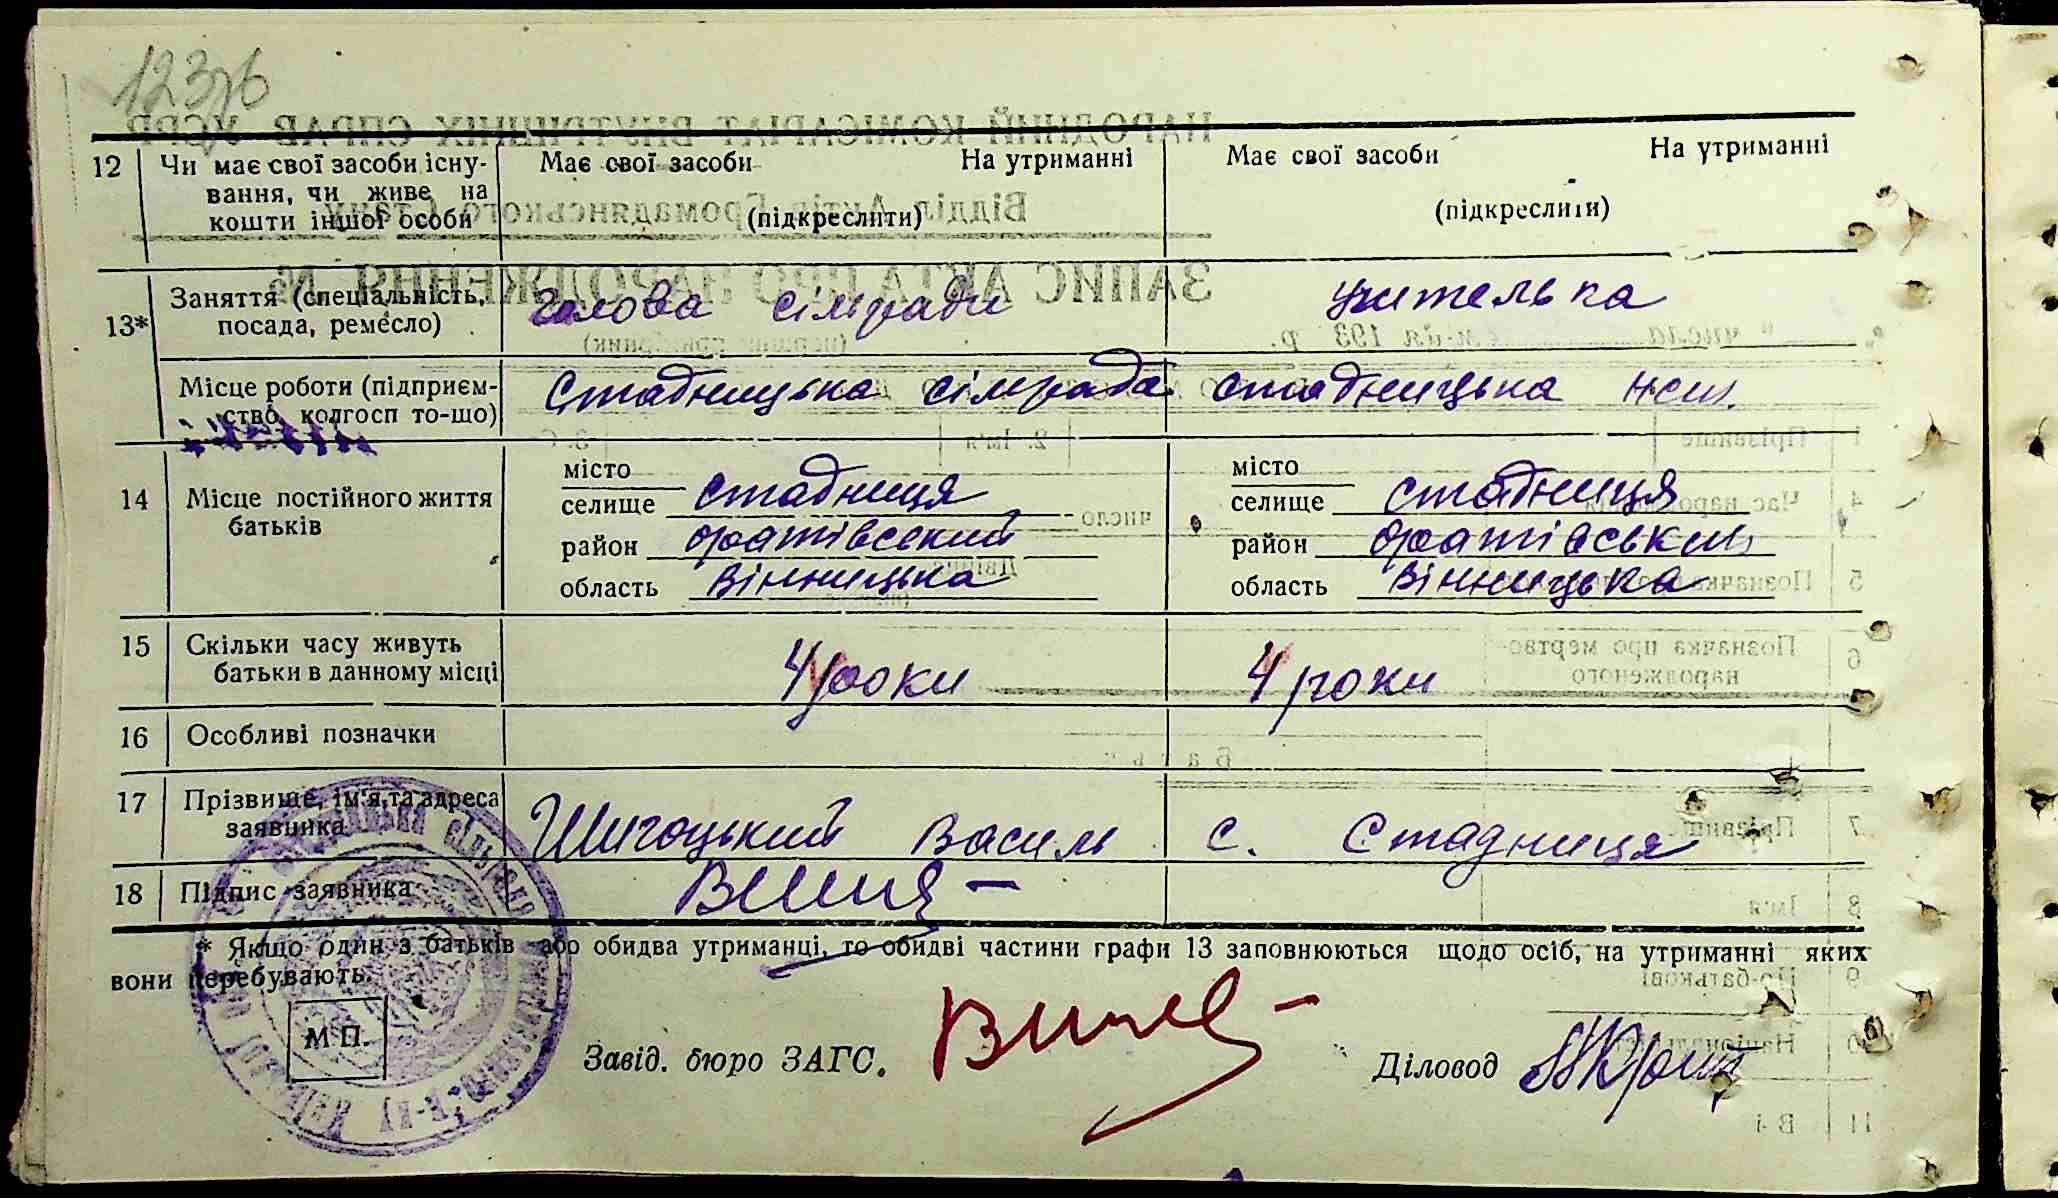 123зб
12 Чи має свої засоби існу- Має свої засоби На утриманні Має свої засоби На утриманні
вання, чи живе на
кошти іншої особи (підкреслити) (підкреслити)
13* Заняття (спеціальність, голова сільради учителька
посада, ремесло)
Місце роботи (підприєм- Стадницька сільрада стадницька нсш.
ство, колгосп то-що)
14 Місце постійного життя
батьків
місто місто
селище стадниця селище стадниця
район оратівський район оратівський
область Вінницька область Вінницька
15 Скільки часу живуть 4 роки 4 роки
батьки в данному місці
16 Особливі позначки
17 Прізвище, ім'я та адреса
заявника Шигоцький Василь с. Стадниця
18 Підпис заявника
* Якщо один з батьків або обидва утриманці, то обидві частини графи 13 заповнюються щодо осіб, на утриманні яких
вони перебувають.
М П.
Завід. бюро ЗАГС. Діловод